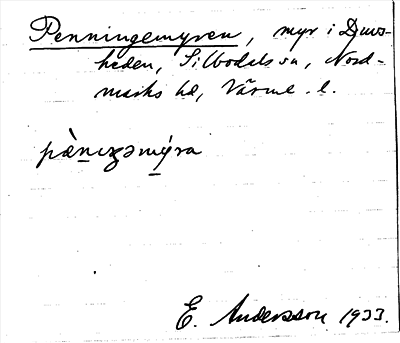 Penningemyren, myr i Djuvs-
heden, Silbodals sn, Nord-
marks hd, Värml. l.
pæ̀nıŋəmýra
E. Andersson 1933.